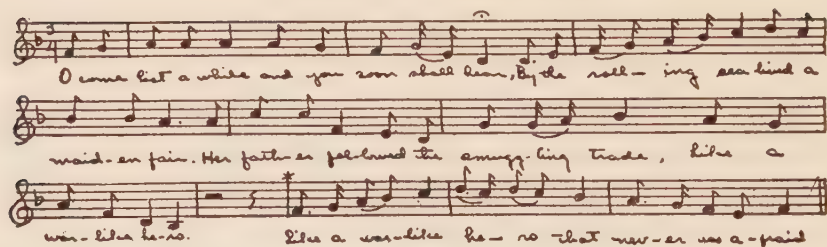 O come list a while and you soon shall hear, By the roll-ing sea lived a
maid-en fair. Her fath-er fol-lowed the smugg-ling trade, Like a
war-like he-ro. Like a war-like he-ro that nev-er was a-fraid